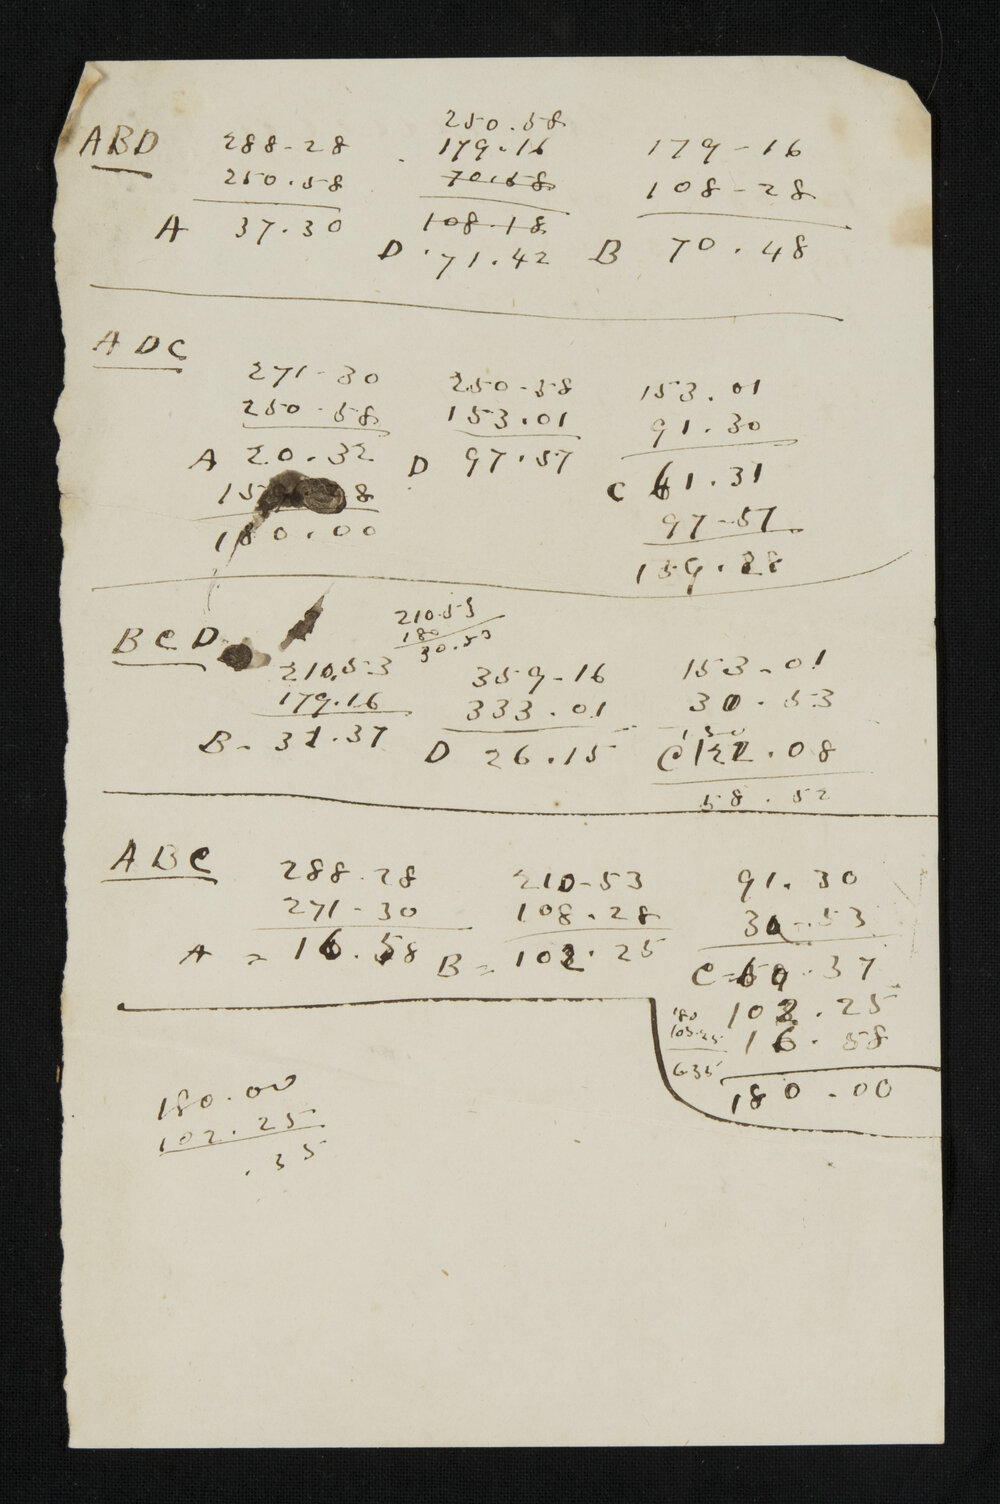 ABD
288-28
250.58
A 37.30
250.58
179.16
70.58
108.18
D 71.42
179-16
108-28
B 70.48
ADC
271-30
250-58
A 20.32
180.00
250-58
153.01
D 97.57
153.01
91.30
C 61.31
97-57
159.28
BCD
210.53
180
30.53
210.53
179.16
B- 31.37
359-16
333.01
D 26.15
153-01
30.53
C 122.08
58.52
ABC
288.28
271-30
A = 16.58
210-53
108.28
B= 102.25
91.30
30-53
C=60.37
102.25
16.58
180.00
180
103.25
635
180.00
102.25
.35